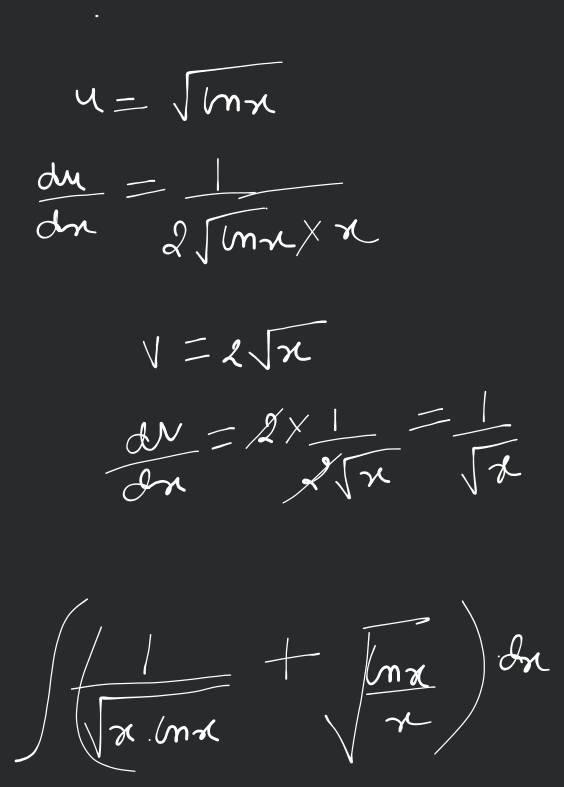 u = √(ln x)
du/dx = 1/(2√(ln x) × x)
v = 2√x
dv/dx = 2 × 1/(2√x) = 1/√x
∫(1/√(x . ln x) + √(ln x/x)) dx